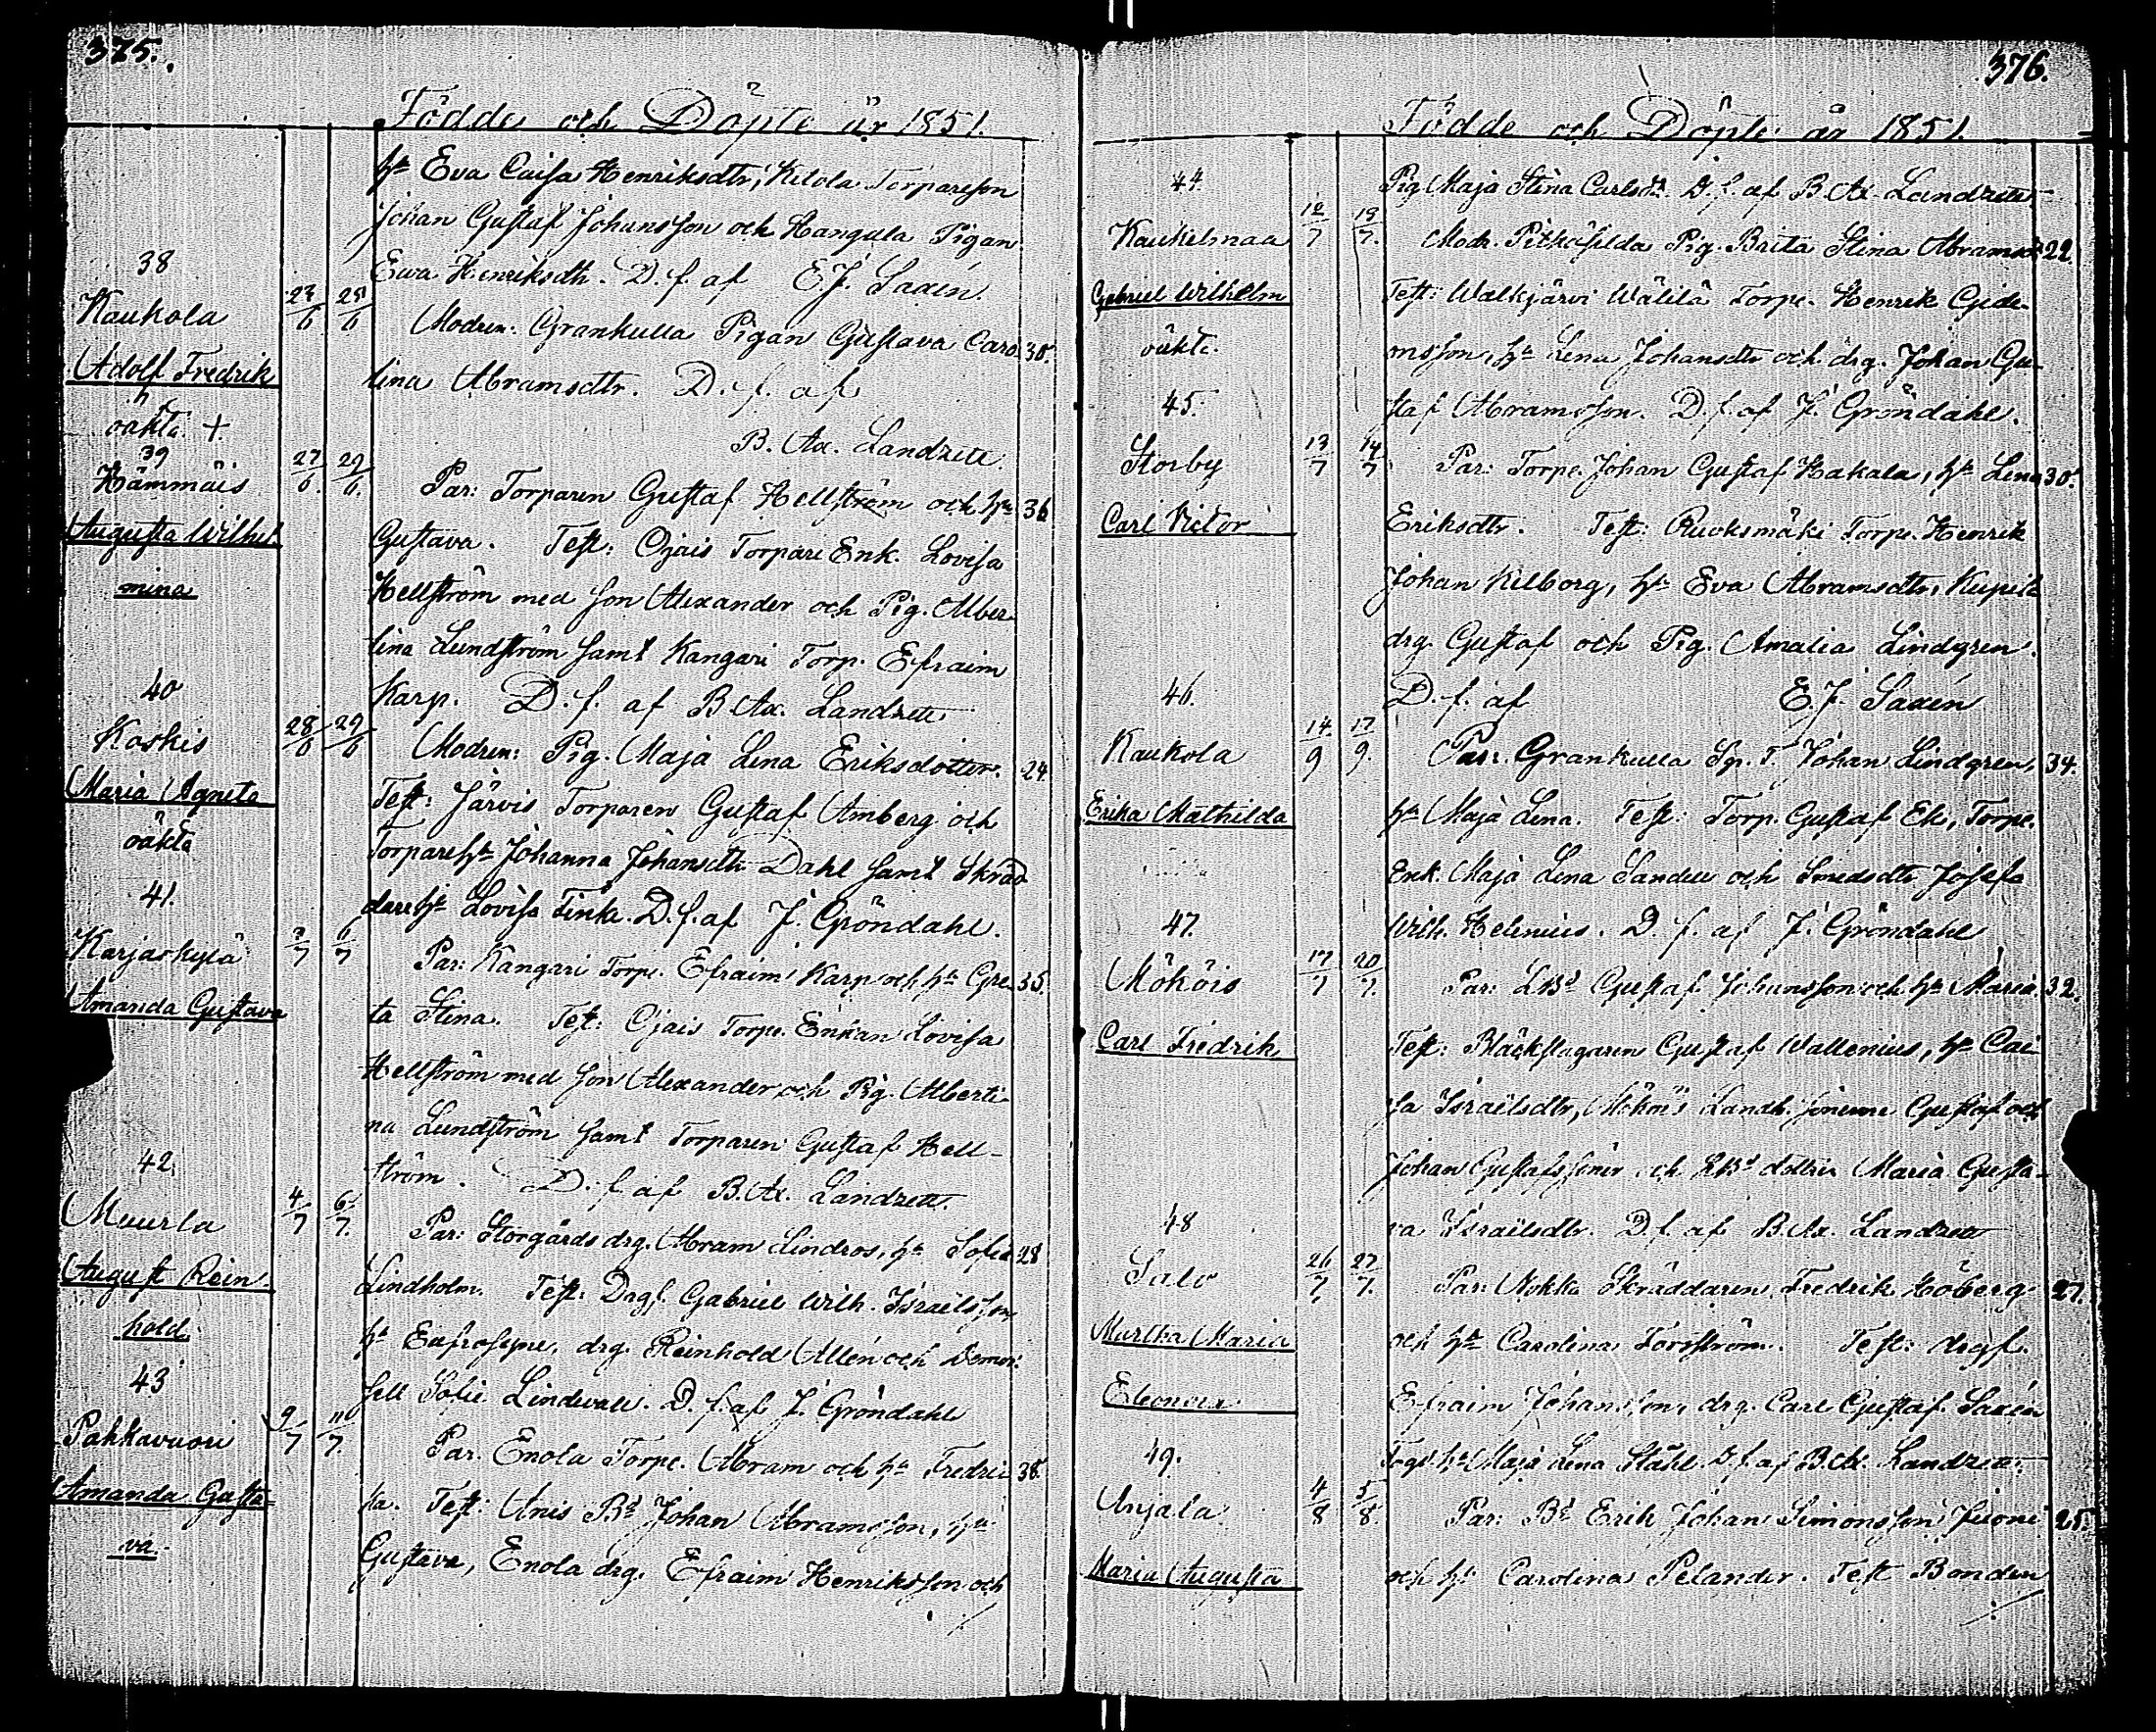 375.
Födde och Döpte år 1851.
hu Eva Caisa Henriksdtr, Kelola Torpareson
Johan Gustaf Johansson och Hangula Pigan
Ewa Henriksdtr. D. f. af E. J. Saxén.
38
Kaukola 23/6 25/6
Adolf Fredrik
oäkta. +.
Modren: Grankulla Pigan Gustava Caro 30.
lina Abramsdtr. D. f. af
B. Ax. Landzett.
39
Hämmäis 27/6. 29/6.
Augusta Wilhel
mina
Par: Torparen Gustaf Hellström och hu 36
Gustava. Test: Ojais Torpare Enk. Lovisa
Hellström med son Alexander och Pig. Alber
tina Lundström samt Kangari Torp. Efraim
Karp. D. f. af B. Ax. Landzett
40
Koskis 28/6 29/6
Maria Agneta
oäkta
Modren: Pig. Maja Lena Eriksdotter. 24
Test: Järvis Torparen Gustaf Amberg och
Torparehu Johanna Johansdtr Dahl samt Skräd
darehu Lovisa Fink. D. f. af J. Gröndahl.
41.
Karjaskylä 3/7 6/7
Amanda Gustava
Par: Kangari Torp. Efraim Karp och hu Gre 35.
ta Stina. Test: Ojais Torp. Enkan Lovisa
Hellström med son Alexander och Pig. Alberti
na Lundström samt Torparen Gustaf Hell-
ström. D. f. af B. Ax. Landzett.
42
Muurla 4/7 6/7.
August Rein-
hold
Par: Storgårds drg. Abram Lindros, hu Sofia 28
Lindholm. Test: Drgf. Gabriel Wilh. Israelsson
hu Eufrosyne, drg. Reinhold Allén och Demoi
sell Sofie Lindwall. D. f. af J. Gröndahl
43
Pakkavuori 9/7 11/7.
Amanda Gusta-
va.
Par. Enola Torpr. Abram och hu Fredri 38.
ka. Test: Unis Bd Johan Abramsson, hu
Gustava, Enola drg. Efraim Henriksson och
376.
Födde och Döpte år 1851.
Pig Maja Stina Carlsdtr. D. f. af B. Ax. Landzett
44.
Kaukelmaa 12/7 13/7.
Gabriel Wilhelm
oäkta.
Modr. Pitkäsilda Pig. Brita Stina Abramsdr 22.
Test: Walkjärvi Wälilä Torpr. Henrik Gide-
onsson, hu Lena Johansdtr och drg. Johan Gu-
staf Abramsson. D. f. af J. Gröndahl.
45.
Storby 13/7 14/7
Carl Victor
Par: Torpr. Johan Gustaf Hakala, hu Lena 30.
Eriksdtr. Test: Ruoksmäki Torpr. Henrik
Johan Kilborg, hu Eva Abramsdtr,
drg. Gustaf och Pig. Amalia Lindgren.
D. f. af E. J. Saxén
46.
Kaukola 14/9 17/9.
Erika Mathilda
Par: Grankulla Johan Lindgren, 34.
hu Maja Lena. Test: Torp. Gustaf Ek, Torpr.
Enk. Maja Lena Sandell och Smedsdtr Josefa
Wilh. Helenius. D. f. af J. Gröndahl
47.
Mököis 17/7 20/7.
Carl Fredrik
Par: LBd Gustaf Johansson och hu Maria. 32.
Test: Bläckslagaren Gustaf Wallenius, hu Cai
sa Israelsdtr, Mököis Landb. sönerne Gustaf och
Johan Gustafssöner och LBd dottern Maria Gusta-
va Israelsdtr. D. f. af B. Ax. Landzett
48
Salo 26/7 27/7.
Martha Maria
Eleonora
Par: Nokka Skräddaren Fredrik Höberg 27.
och hu Carolina Forsström. Test: drgf.
Efraim Johansson, drg. Carl Gustaf Saxén
hu Maja Lena Ståhl. D. f. af B. Ax. Landzett.
49.
Anjala 4/8 5/8.
Maria Augusta
Par: Bd Erik Johan Simonsson Juoni 25.
och hu Carolina Pelander. Test Bonden